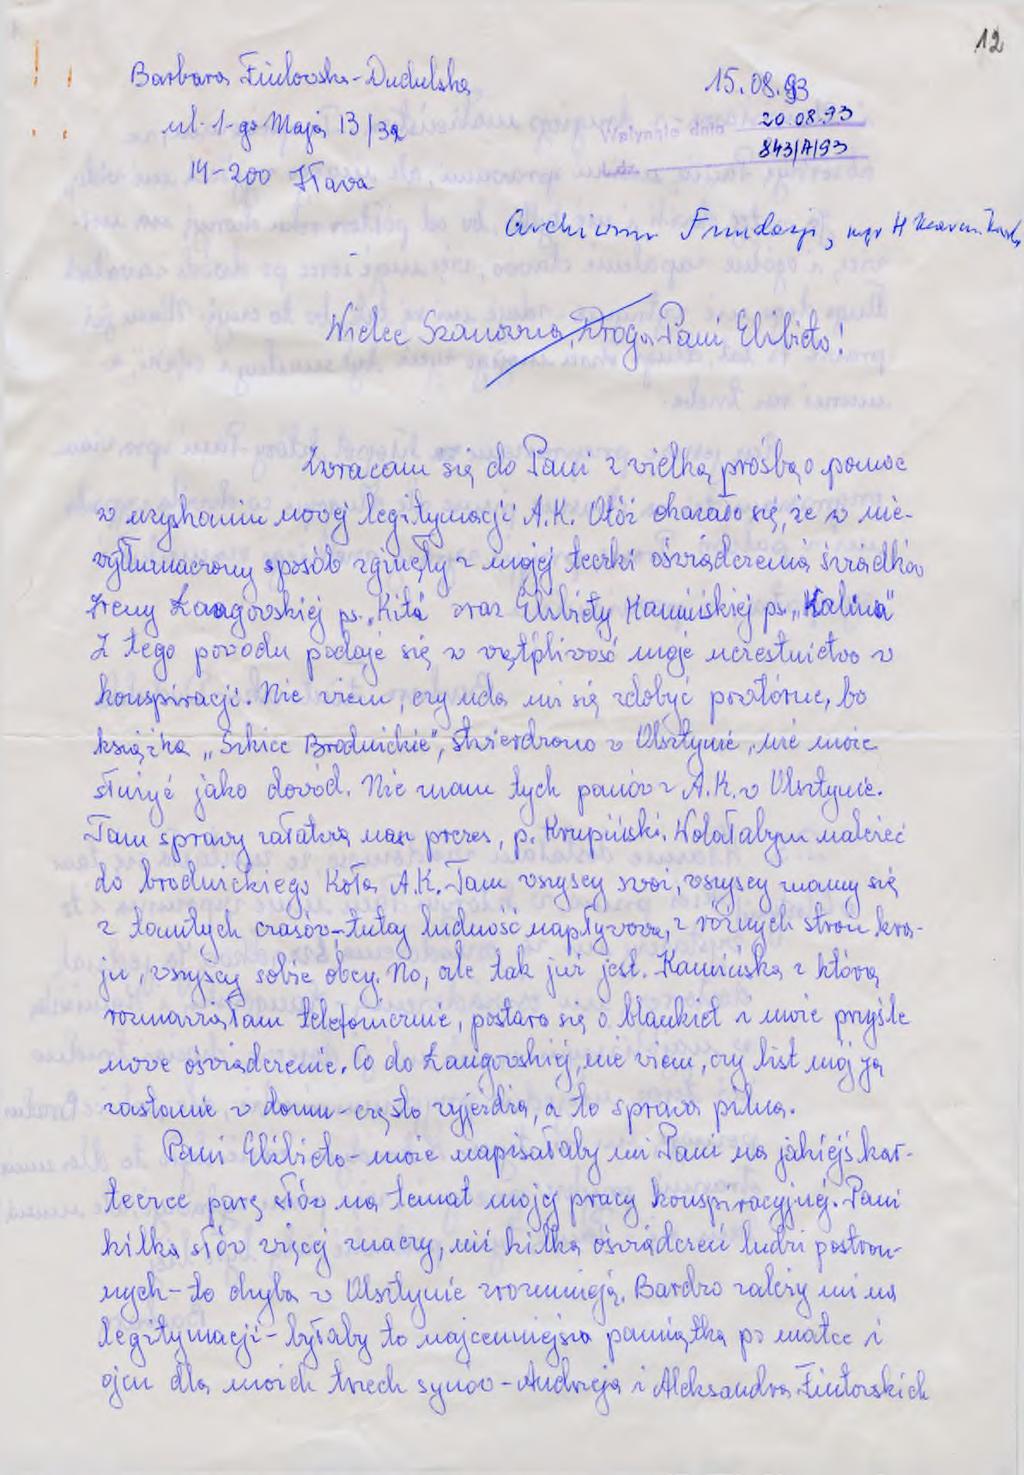 12
Barbara Fiutowska-Dudulska
ul. 1-go Maja 13/32
14-200 Iława
15.08.93
20.08.93
843/A/93
Archiwum Fundacji, mgr H
Wielce Szanowna, Droga Pani Elżbieto!
Zwracam się do Pani z wielką prośbą o pomoc
w uzyskaniu nowej legitymacji A.K. Otóż okazało się, że w nie-
wytłumaczony sposób zginęły z mojej teczki oświadczenia świadków
Ireny Langowskiej ps. „Kita" oraz Elżbiety Kamińskiej ps. „Kalina"
Z tego powodu podaje się w wątpliwość moje uczestnictwo w
konspiracji. Nie wiem, czy uda mi się zdobyć powtórne, bo
książka „Szkice Brodnickie", stwierdzono w Olsztynie, nie może
służyć jako dowód. Nie znam tych panów z A.K. w Olsztynie.
Tam sprawy załatwia nasz prezes, p. Krupiński. Wolałabym należeć
do brodnickiego Koła A.K. Tam wszyscy swoi, wszyscy znamy się
z tamtych czasów - tutaj ludność napływowa, z różnych stron kra-
ju, wszyscy sobie obcy. No, ale tak już jest. Kamińska z którą
rozmawiałam telefonicznie, postara się o blankiet i może przyśle
nowe oświadczenie. Co do Langowskiej, nie wiem, czy list mój ją
zastanie w domu - często wyjeżdża, a to sprawa pilna.
Pani Elżbieto - może napisałaby mi Pani na jakiejś kar-
teczce parę słów na temat mojej pracy konspiracyjnej. Pani
kilka słów więcej znaczy, niż kilka oświadczeń ludzi postron-
nych - to chyba w Olsztynie zrozumieją. Bardzo zależy mi na
legitymacji - byłaby to najcenniejsza pamiątka po matce i
ojcu dla moich trzech synów - Andrzeja i Aleksandra Fiutowskich